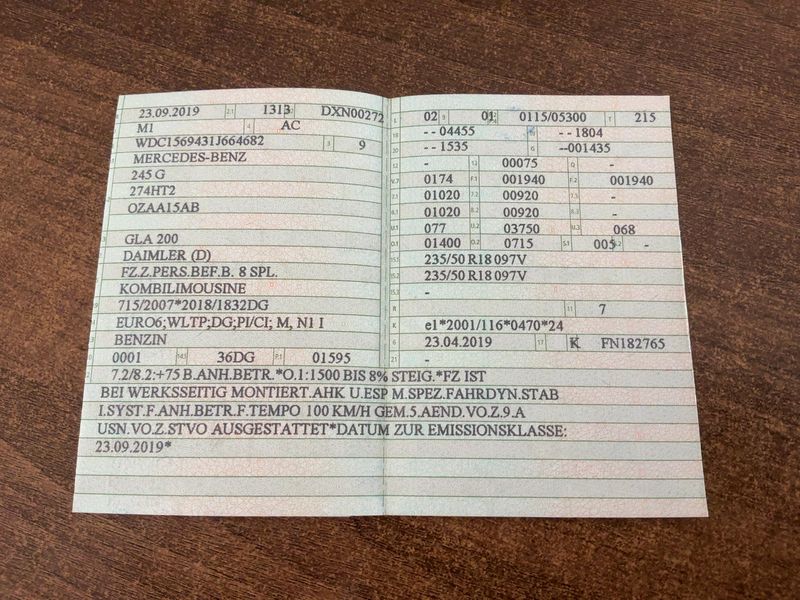 23.09.2019 2.1 1313 DXN00272
M1 4 AC
WDC1569431J664682 3 9
MERCEDES-BENZ
245 G
274HT2
OZAA15AB
GLA 200
DAIMLER (D)
FZ.Z.PERS.BEF.B. 8 SPL.
KOMBILIMOUSINE
715/2007*2018/1832DG
EURO6;WLTP;DG;PI/CI; M, N1 I
BENZIN
0001 14.1 36DG P.1 01595
L 02 9 01 0115/05300 T 215
18 --04455 --1804
20 --1535 G --001435
- 12 00075 Q -
V.7 0174 F.1 001940 F.2 001940
7.1 01020 7.2 00920 7.3 -
8.1 01020 8.2 00920 8.3 -
U.1 077 U.2 03750 U.3 068
O.1 01400 O.2 0715 S.1 005 S.2 -
15.1 235/50 R18 097V
15.2 235/50 R18 097V
15.3 -
R 11 7
K e1*2001/116*0470*24
6 23.04.2019 17 K FN182765
21 -
7.2/8.2:+75 B.ANH.BETR.*O.1:1500 BIS 8% STEIG.*FZ IST
BEI WERKSSEITIG MONTIERT.AHK U.ESP M.SPEZ.FAHRDYN.STAB
I.SYST.F.ANH.BETR.F.TEMPO 100 KM/H GEM.5.AEND.VO.Z.9.A
USN.VO.Z.STVO AUSGESTATTET*DATUM ZUR EMISSIONSKLASSE:
23.09.2019*